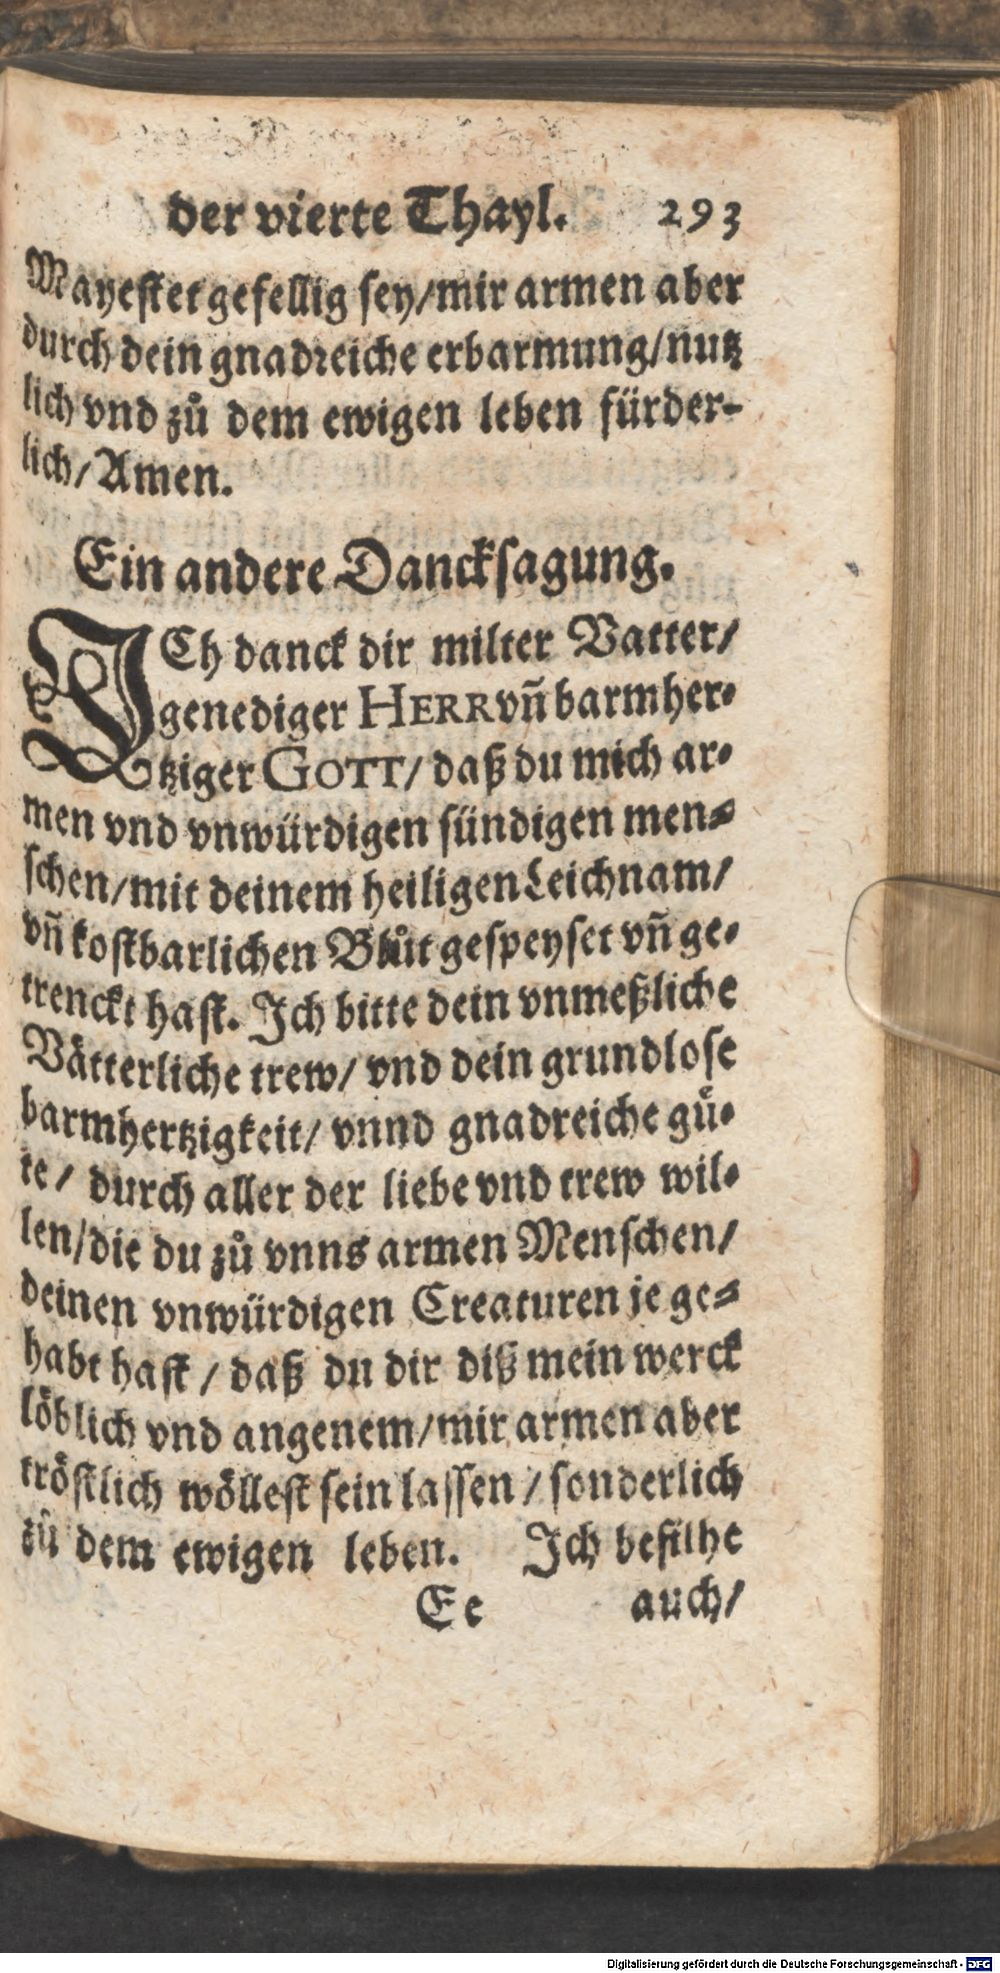 der vierte Thayl. 293
Mayestet gefellig sey/mir armen aber
durch dein gnadreiche erbarmung/nutz
lich vnd zů dem ewigen leben fürder-
lich/Amen.
Ein andere Dancksagung.
ICh danck dir milter Vatter/
genediger HERR vñ barmher-
tziger GOTT/ daß du mich ar-
men vnd vnwürdigen sündigen men-
schen/mit deinem heiligen Leichnam/
vñ kostbarlichen Blůt gespeyset vñ ge-
trenckt hast. Ich bitte dein vnmeßliche
Vätterliche trew/ vnd dein grundlose
barmhertzigkeit/ vnnd gnadreiche guͤ-
te/ durch aller der liebe vnd trew wil-
len/die du zů vnns armen Menschen/
deinen vnwürdigen Creaturen je ge-
habt hast/ daß du dir diß mein werck
löblich vnd angenem/mir armen aber
tröstlich wöllest sein lassen/ sonderlich
zů dem ewigen leben. Ich befilhe
Ee auch/
Digitalisierung gefördert durch die Deutsche Forschungsgemeinschaft - DFG